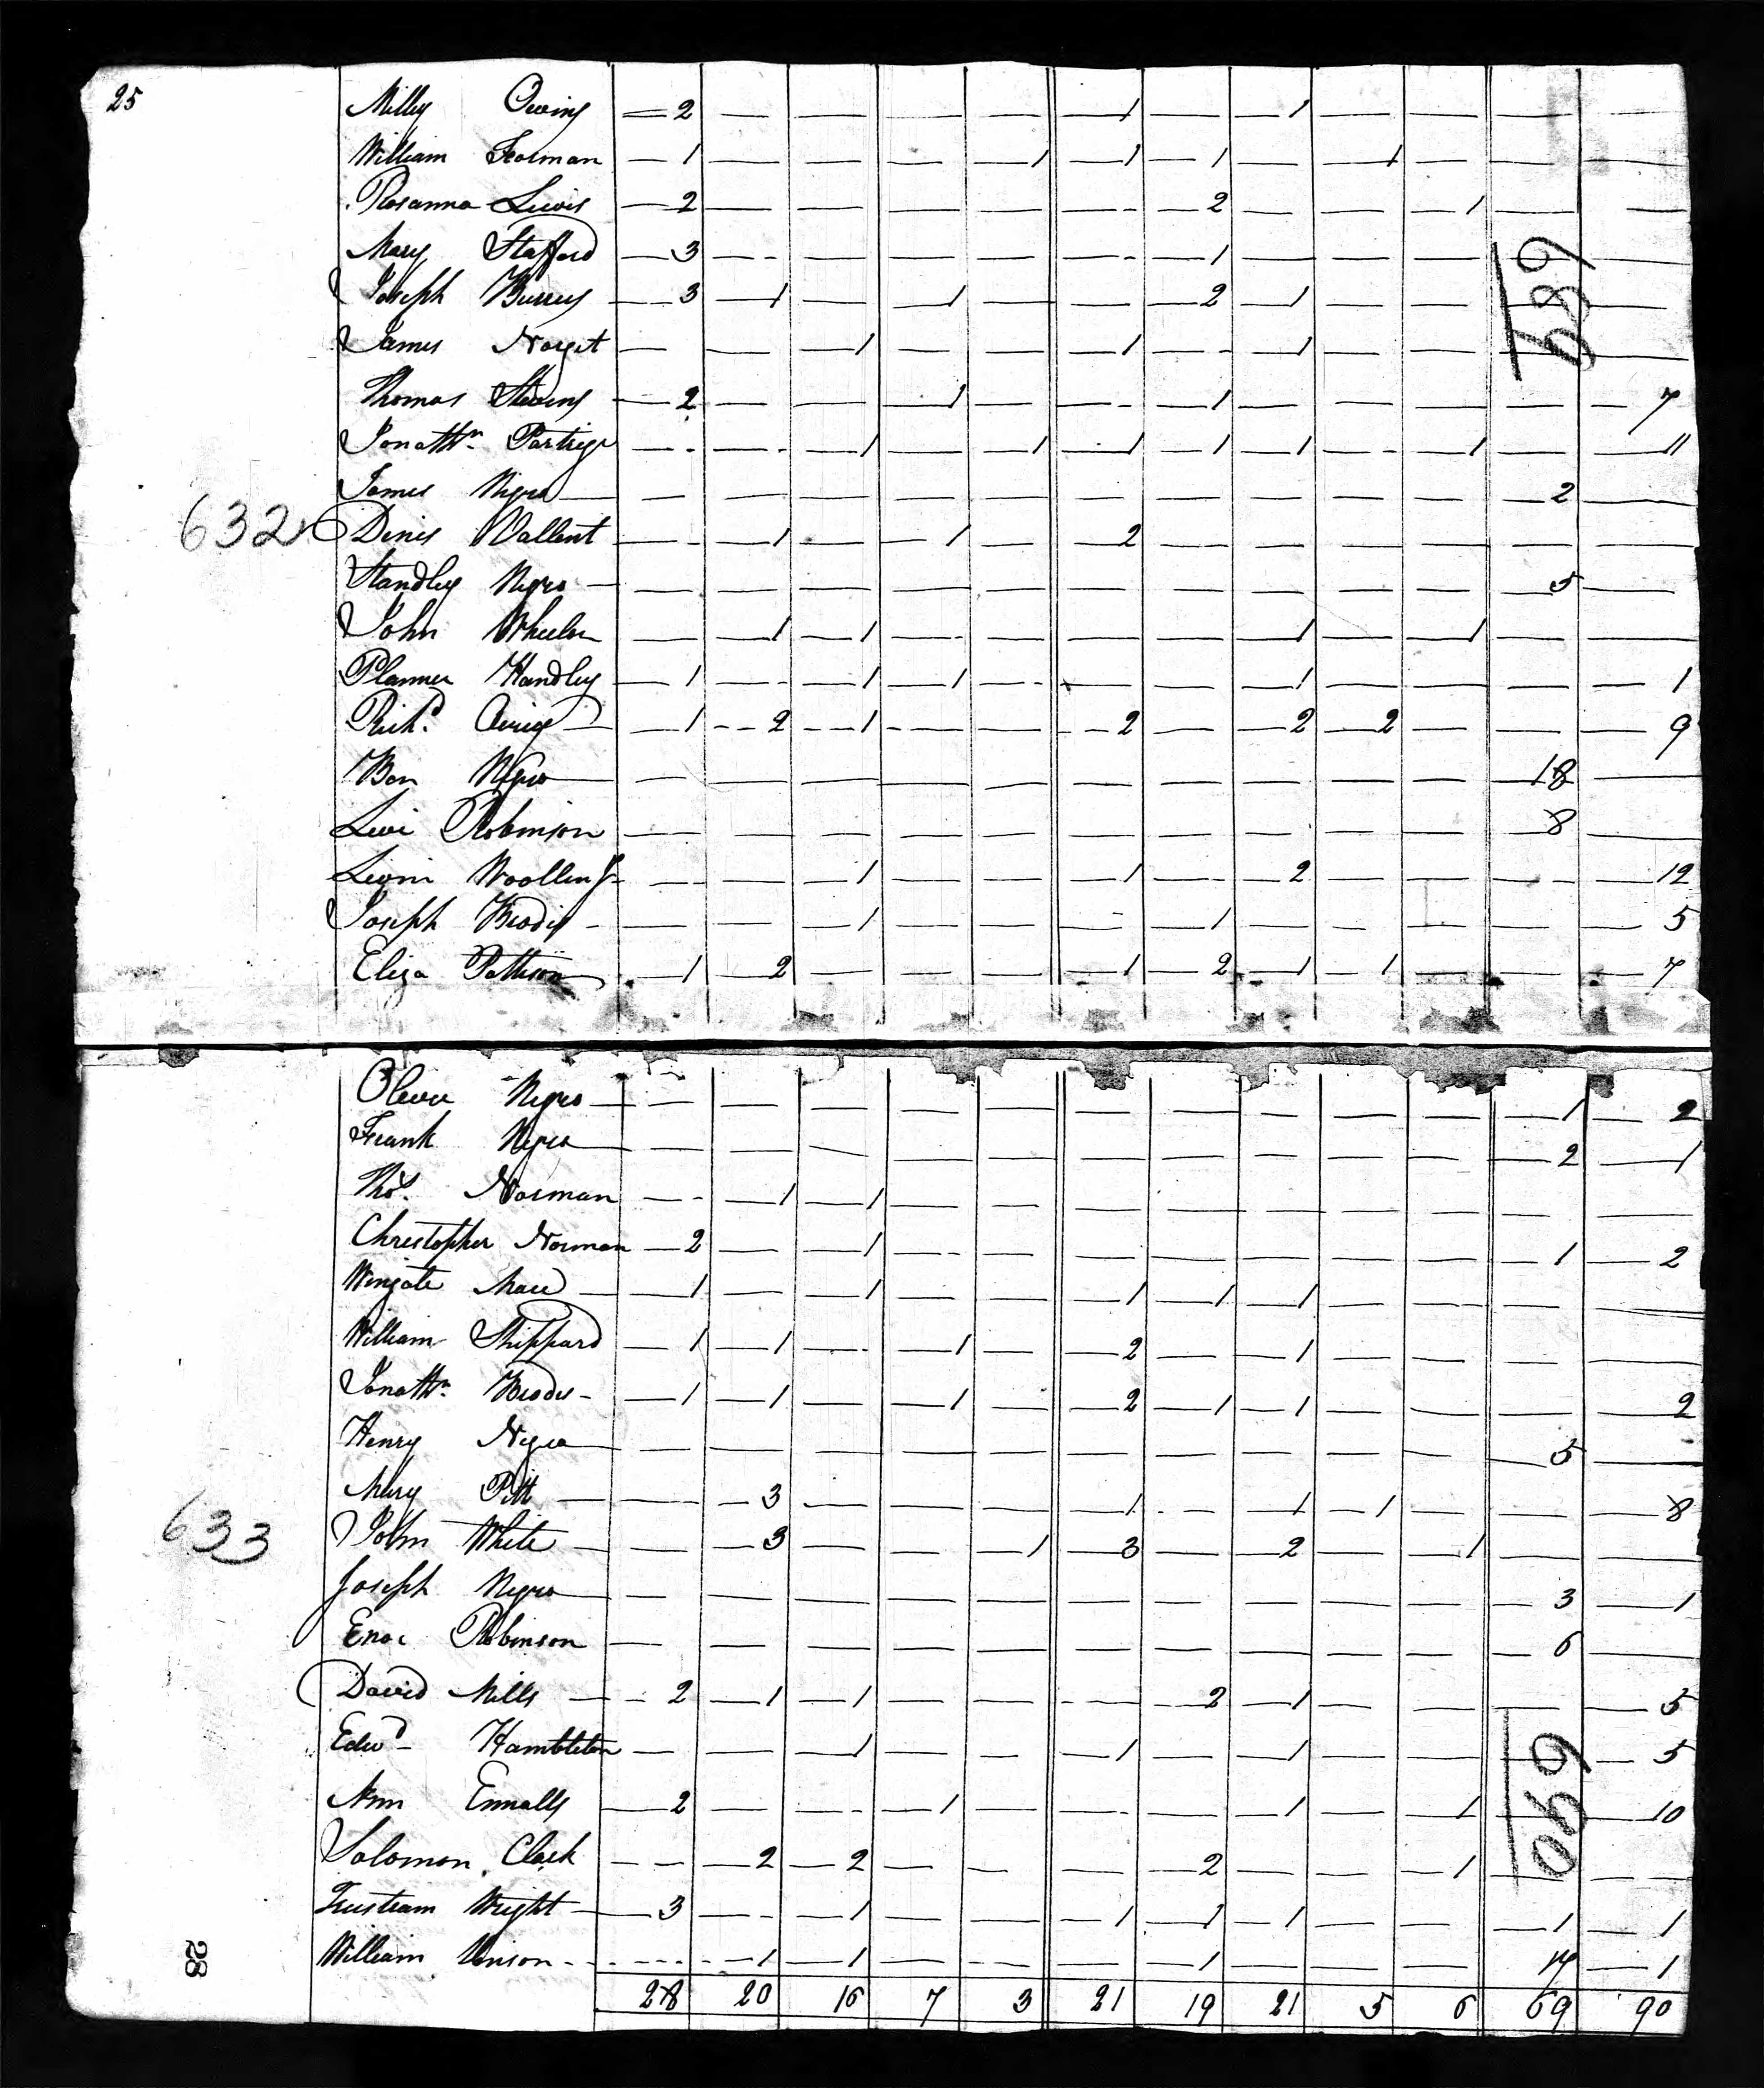 25
Milly Owing — 2 — — — — 1 — 1 — — — —
William Foxman — 1 — — — 1 1 1 — 1 — — —
Rosanna Lewis — 2 — — — — — 2 — — 1 — —
Mary Stafford — 3 — — — — — 1 — — — — —
Joseph Burrus — 3 1 — 1 — — 2 1 — — — —
James — — 1 — — 1 — 1 — — — —
Thomas Stevens — 2 — — 1 — — 1 — — — — 7
Jonathn. Partrige — — 1 — 1 1 1 1 — 1 — 11
James Negro — — — — — — — — — — 2 —
632 Denis Vallent — 1 — 1 — 2 — — — — — —
Standley Negro — — — — — — — — — — 5 —
John Wheeler — 1 1 — — — — 1 — 1 — —
Planner Handley — 1 — 1 1 — — — 1 — — — 1
Richd. — 1 2 1 — — 2 — 2 2 — — 9
Ben Negro — — — — — — — — — — 18 —
Levi Robinson — — — — — — — — — — 8 —
Levin Woollen Jr — — 1 — — 1 — 2 — — — 12
Joseph — — 1 — — — 1 — — — — 5
Eliza Pattison — 1 2 — — — 1 2 1 1 — — 7
689
Oliver Negro — — — — — — — — — — 1 2
Frank Negro — — — — — — — — — — 2 1
Thos. Norman — 1 1 — — — — — — — — —
Christopher Norman — 2 — 1 — — — — — — — 1 2
Wingate Mace — 1 — 1 — — 1 1 1 — — — —
William Shippard — 1 1 — 1 — 2 — 1 — — — —
Jonathn. — 1 1 — 1 — 2 1 1 — — — 2
Henry Negro — — — — — — — — — — 5 —
Mary Pitt — 3 — — — 1 — 1 1 — — 8
633 John White — 3 — — 1 3 — 2 — 1 — —
Joseph Negro — — — — — — — — — — 3 1
Enoc Robinson — — — — — — — — — — 6 —
David Mills — 2 1 1 — — — 2 1 — — — 5
Edwd. Hambleton — — 1 — — 1 — 1 — — — 5
Ann Ennalls — 2 — — 1 — — — 1 — 1 — 10
Solomon Clark — 2 2 — — — 2 — — 1 — —
Tristram Wright — 3 — 1 — — 1 1 1 — — 1 1
William Vinson — 1 1 — — — 1 — — — 17 1
28 20 16 7 3 21 19 21 5 6 69 90
690
28